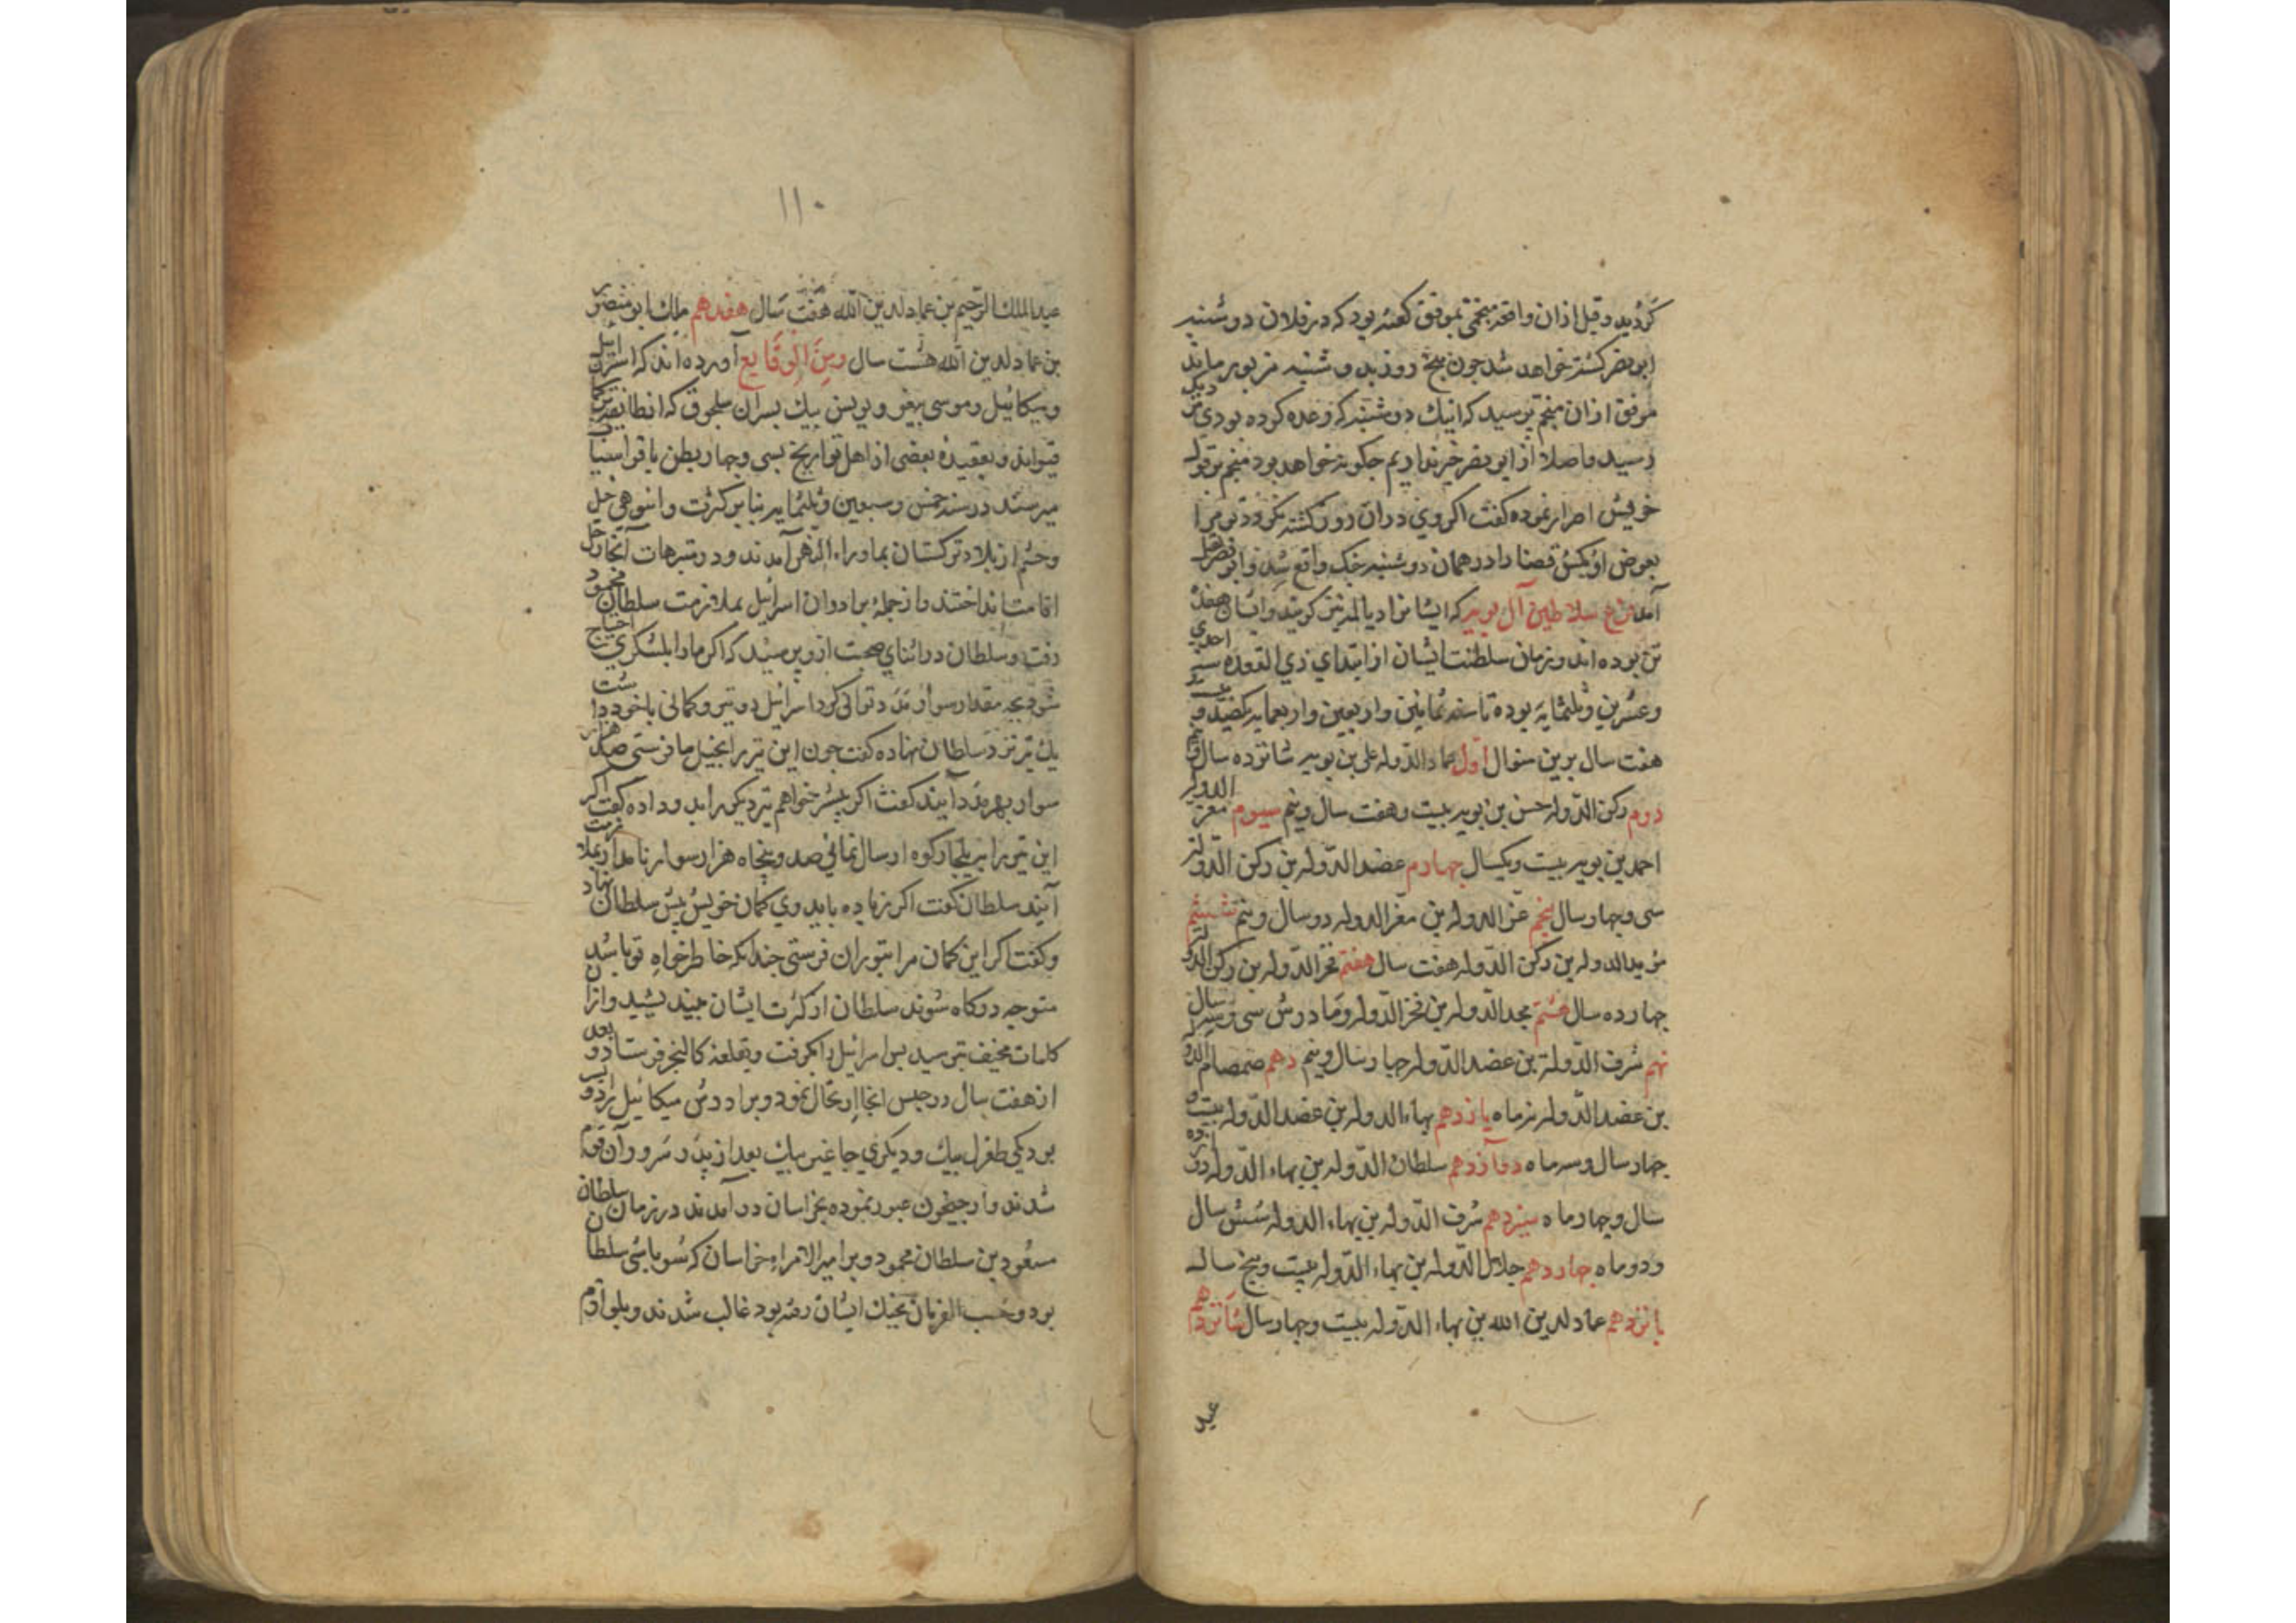 کردید و قبل ازان واقعه منجمی بموفق گفته بود که در فلان دوشنبه
ابو نصر کشته خواهد شد چون پنج روز بدوشنبه مزبور ماند
موفق ازان منجم پرسید که اینک دوشنبه که وعده کرده بودی نزدیک
رسید و اصلا از ابو نصر خبر نداریم چگونه خواهد بود منجم بر قول
خویش اصرار نموده گفت اکر وی دران روز کشته نکردد تو مرا
بعوض او بکش قضا را در همان دوشنبه جنک واقع شد و ابو نصر بقتل
آمد سلاطین آل بویه که ایشانرا دیالمه نیز کویند و ایشان هفده
تن بوده اند و زمان سلطنت ایشان از ابتدای ذی القعده سنه احدی
و عشرین و ثلثمایه بوده تا سنه ثمانین و اربعین و اربعمایه یکصد و بیست و
هفت سال برین منوال اول عماد الدوله علی بن بویه شانزده سال و نیم
دوم رکن الدوله حسن بن بویه بیست و هفت سال و نیم سیوم معز الدوله
احمد بن بویه بیست و یکسال چهارم عضد الدوله بن رکن الدوله
سی و چهار سال پنجم عز الدوله بن معز الدوله دو سال و نیم ششم
مؤید الدوله بن رکن الدوله هفت سال هفتم فخر الدوله بن رکن الدوله
چهارده سال هشتم مجد الدوله بن فخر الدوله و مادرش سی و سه سال
نهم شرف الدولة بن عضد الدوله چهار سال و نیم دهم صمصام الدوله
بن عضد الدوله نه ماه یازدهم بهاء الدوله بن عضد الدوله بیست و
چهار سال و سه ماه دوآزدهم سلطان الدوله بن بهاء الدوله دوازده
سال و چهار ماه سیزدهم شرف الدوله بن بهاء الدوله شش سال
و دو ماه چهاردهم جلال الدوله بن بهاء الدوله بیست و پنج ساله
پانزدهم عماد لدین الله بن بهاء الدوله بیست و چهار سال شانزدهم
عبد
۱۱۰
عبد الملک الرحیم بن عماد لدین الله هفت سال هفدهم ملک ابو منصور
بن عماد لدین الله هشت سال ومن الوقایع آورده اند که اسرائیل
و میکائیل و موسی بیغو و یونس بیک پسران سلجوق که از طایفه ترکمان
قنیق اند و بعقیده بعضی از اهل تواریخ بسی و چهار بطن بافراسیاب
میرسند در سنه خمس و سبعین و ثلثمایه بنابر کثرت و انبوهی خیل
و حشم از بلاد ترکستان بماوراء النهر آمدند و در آنجا رحل
اقامت انداختند و از جمله برادران اسرائیل بملازمت سلطان محمود
رفت و سلطان در اثنای صحبت ازو پرسید که اکر مارا بلشکری احتیاج
شود بچه مقدار سوار مدد توانی کرد اسرائیل دو تیر و کمانی با خود داشت
یک تیر نزد سلطان نهاده کفت چون این تیر را بخیل ما فرستی صد هزار
سوار بهر مدد آیند کفت اکر بیشتر خواهم تیر دیکر بدو داده کفت اکر
این تیر را ببلجان کوه ارسال نمائی صد و پنجاه هزار سوار نامدار بملازمت
آیند سلطان کفت اکر زیاده باید وی کمان خویش پیش سلطان نهاد
و کفت اکر این کمان مرا بتوران فرستی چندانکه خاطرخواه تو باشد
متوجه درکاه شوند سلطان از کثرت ایشان بیندیشید و ازان
کلمات مخیف بترسید پس اسرائیل را بکرفت و بقلعه کالنجر فرستاد و بعد
از هفت سال در حبس انجا ارتحال نمود و برادرش میکائیل را دو پسر
بود یکی طغرل بیک و دیکری جاغیر بیک بعد از پدر سرور آن قوم
شدند و از جیحون عبور نموده بخراسان در آمدند در زمان سلطان
مسعود بن سلطان محمود و بر امیر الامراء خراسان که سوباشی سلطان
بود و حسب الفرمان بجنک ایشان رفته بود غالب شدند و بلوازم